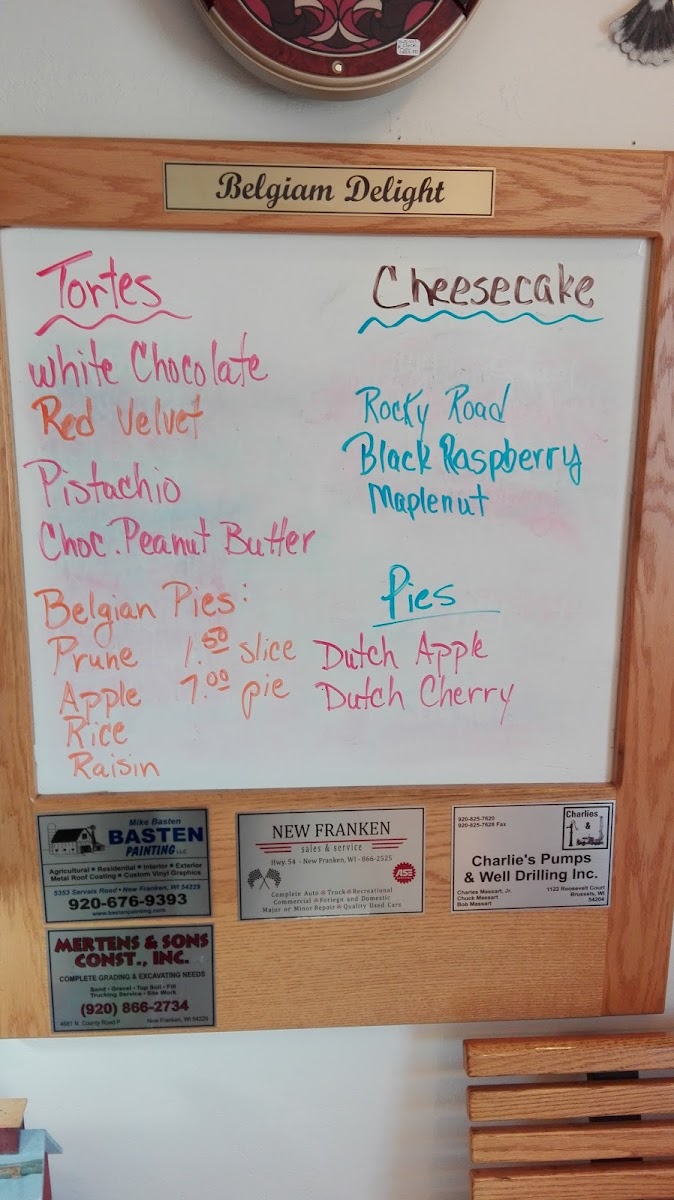 Belgiam Delight
Tortes
White Chocolate
Red Velvet
Pistachio
Choc. Peanut Butter
Belgian Pies:
Prune 1.50 slice
Apple 7.00 pie
Rice
Raisin
Cheesecake
Rocky Road
Black Raspberry
Maplenut
Pies
Dutch Apple
Dutch Cherry
Mike Basten
BASTEN
PAINTING LLC
Agricultural • Residential • Interior • Exterior
Metal Roof Coating • Custom Vinyl Graphics
5353 Servais Road • New Franken, WI 54229
920-676-9393
www.bastenpainting.com
NEW FRANKEN
sales & service
Hwy. 54 - New Franken, WI - 866-2525
ASE
Complete Auto Truck Recreational
Commercial Foriegn and Domestic
Major or Minor Repair Quality Used Cars
920-825-7620
920-825-7628 Fax
Charlies
&
Charlie's Pumps
& Well Drilling Inc.
Charles Massart, Jr.
Chuck Massart
Bob Massart
1122 Roosevelt Court
Brussels, WI
54204
MERTENS & SONS
CONST., INC.
COMPLETE GRADING & EXCAVATING NEEDS
Sand • Gravel • Top Soil • Fill
Trucking Service • Site Work
(920) 866-2734
4681 N. County Road P New Franken, WI 54229